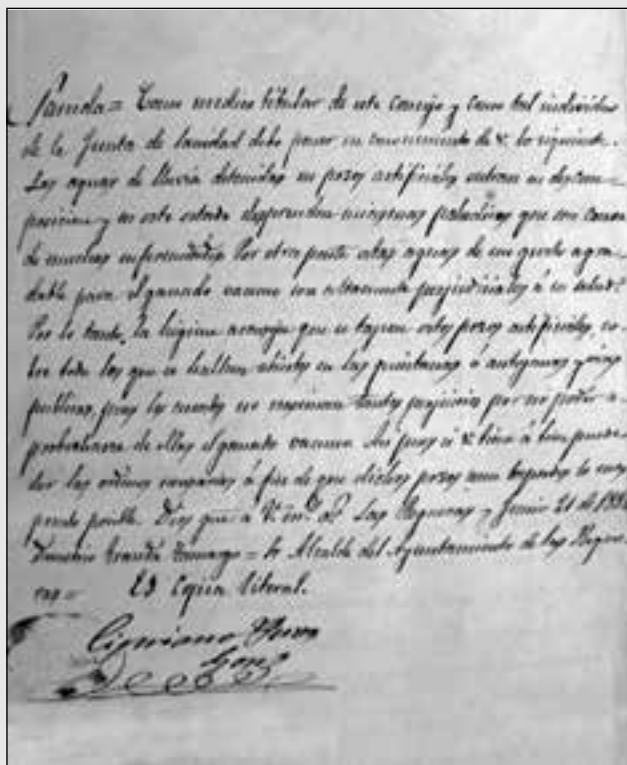 Como medico titular de este concejo y como tal individuo
de la Junta de Sanidad debo poner en conocimiento de V. lo siguiente.
Las aguas de lluvia detenidas en pozos artificiales entran en descom-
posicion y en este estado desprenden miasmas paludicas que son causa
de muchas enfermedades Por otra parte estas aguas de un gusto agra-
dable para el ganado vacuno son altamente perjudiciales á su salud.
Por lo tanto, la higiene aconseja que se tapen estos pozos artificiales, so-
bre todo los que se hallan abiertos en las ó antojanas y vias
publicas, pues los no tantos perjuicios por no poder a-
provecharse de ellos el ganado vacuno. Asi pues si V. tiene á bien puede
dar las ordenes á fin de que dichos pozos sean tapados lo mas
pronto posible. Dios gue á V. m. a. Las Regueras y Junio 21 de
= Sr Alcalde del Ayuntamiento de las Regue-
ras = Es Copia literal.
Cipriano